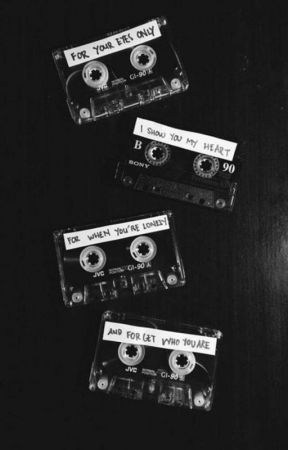 FOR YOUR EYES ONLY
JVC GI-90 A
I SHOW YOU MY HEART
B 90
SONY
FOR WHEN YOU'RE LONELY
JVC GI-90 A
AND FORGET WHO YOU ARE
JVC GI-90